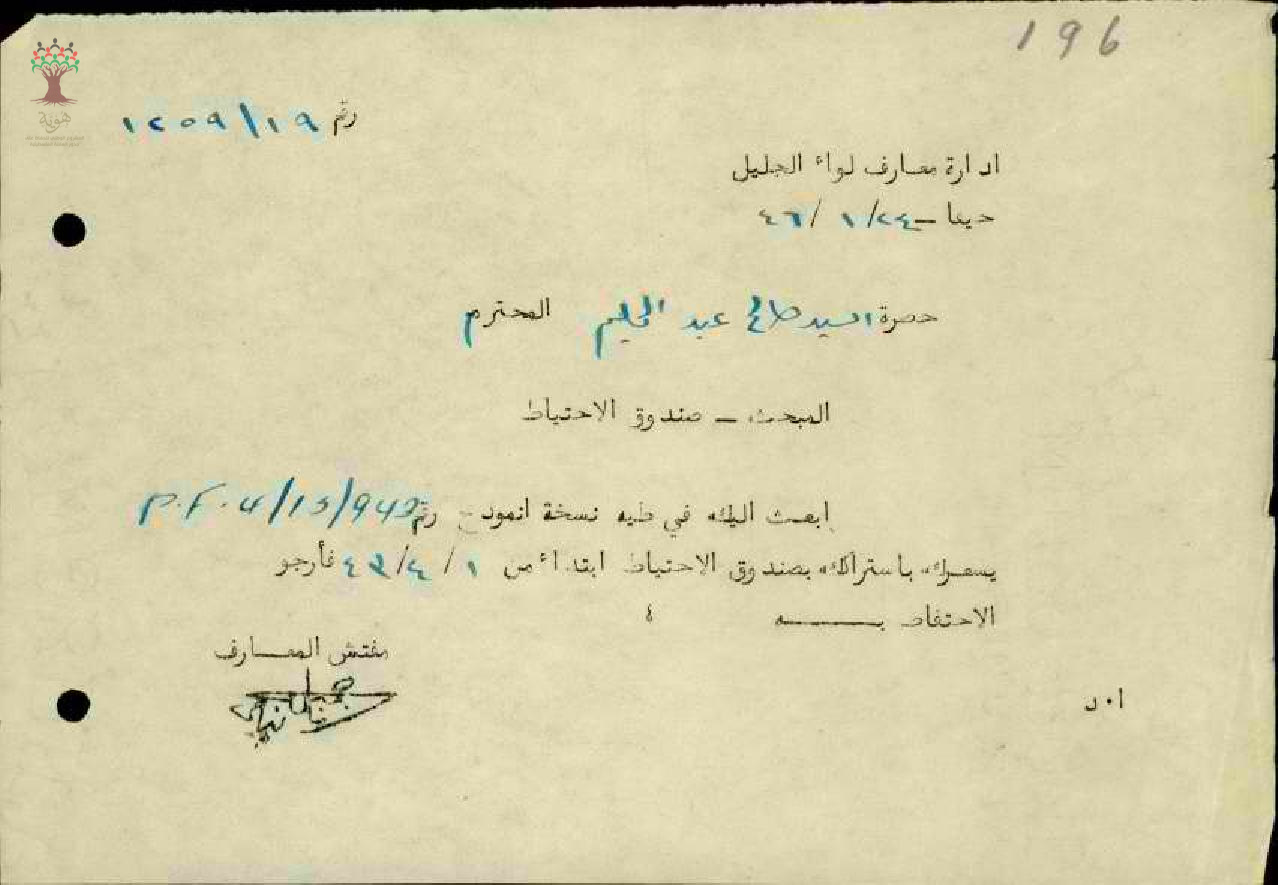 196
هوية
رقم ١٢٥٩/١٩
ادارة معارف لواء الجليل
حيفا - ٤٦/١/٢٤
حضرة السيد صالح عبد الحليم المحترم
المبحث - صندوق الاحتياط
ابعث اليك في طيه نسخة انموذج رقم P.F. 4/13/943
يشعرك باشتراكك بصندوق الاحتياط ابتداء من ٤٣/٤/١ فأرجو
الاحتفاظ به ،
مفتش المعارف
ا٠د